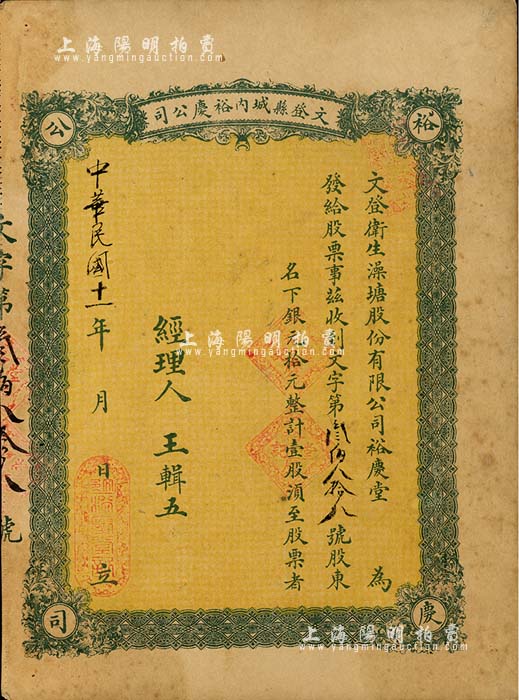 上海陽明拍賣
www.yangmingauction.com
文登縣城內裕慶公司
裕
慶
公
司
文登衛生澡塘股份有限公司裕慶堂 為
發給股票事茲收到文字第貳佰八拾八號股東
名下銀元拾元整計壹股須至股票者
經理人 王輯五
中華民國十一年 月 日立
文字第貳佰八拾八號
上海陽明拍賣
www.yangmingauction.com
上海陽明拍賣
www.yangmingauction.com